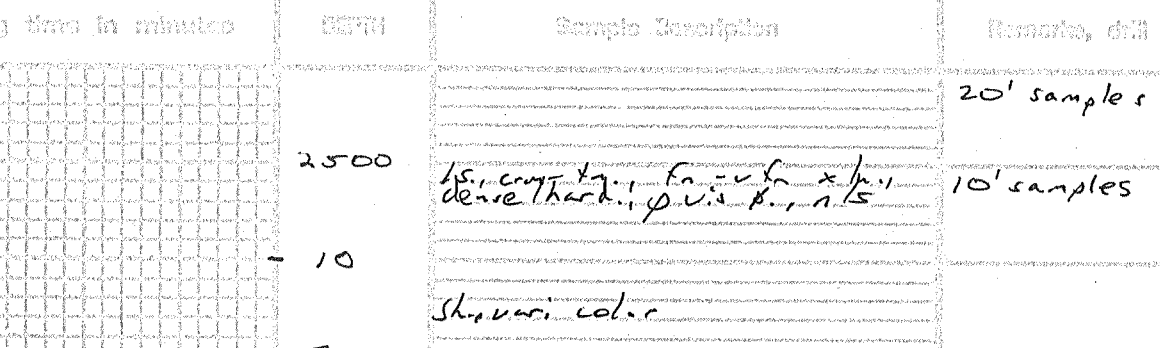 g time in minutes DEPTH Sample Description Remarks, drill
20' samples
2500 ls., crm- tn., fn - v fn xln., 10' samples
dense/hard., φ vis φ., n/s
- 10
sh., vari color